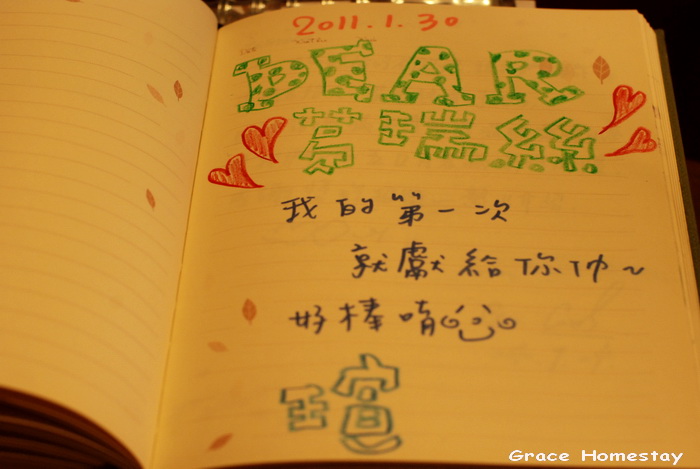 2011.1.30
DEAR
葛瑞絲
我的"第一次
就獻給你
好棒唷
瑄
Grace Homestay